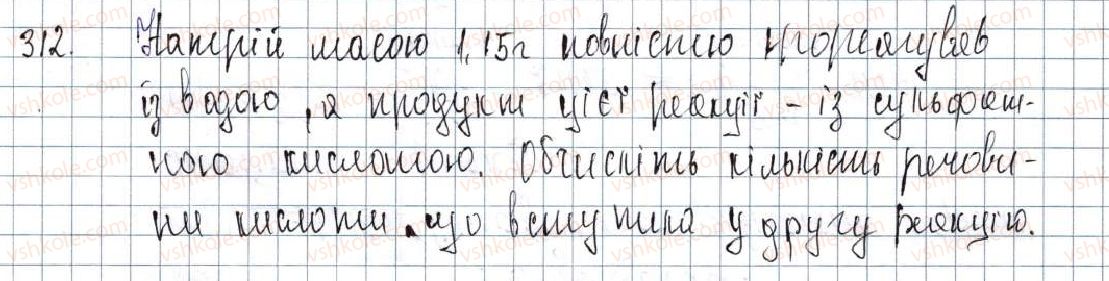 312. Натрій масою 1,15г повністю прореагував
із водою, а продукт цієї реакції - із сульфат-
ною кислотою. Обчисліть кількість речови-
ни кислоти, що вступила у другу реакцію.